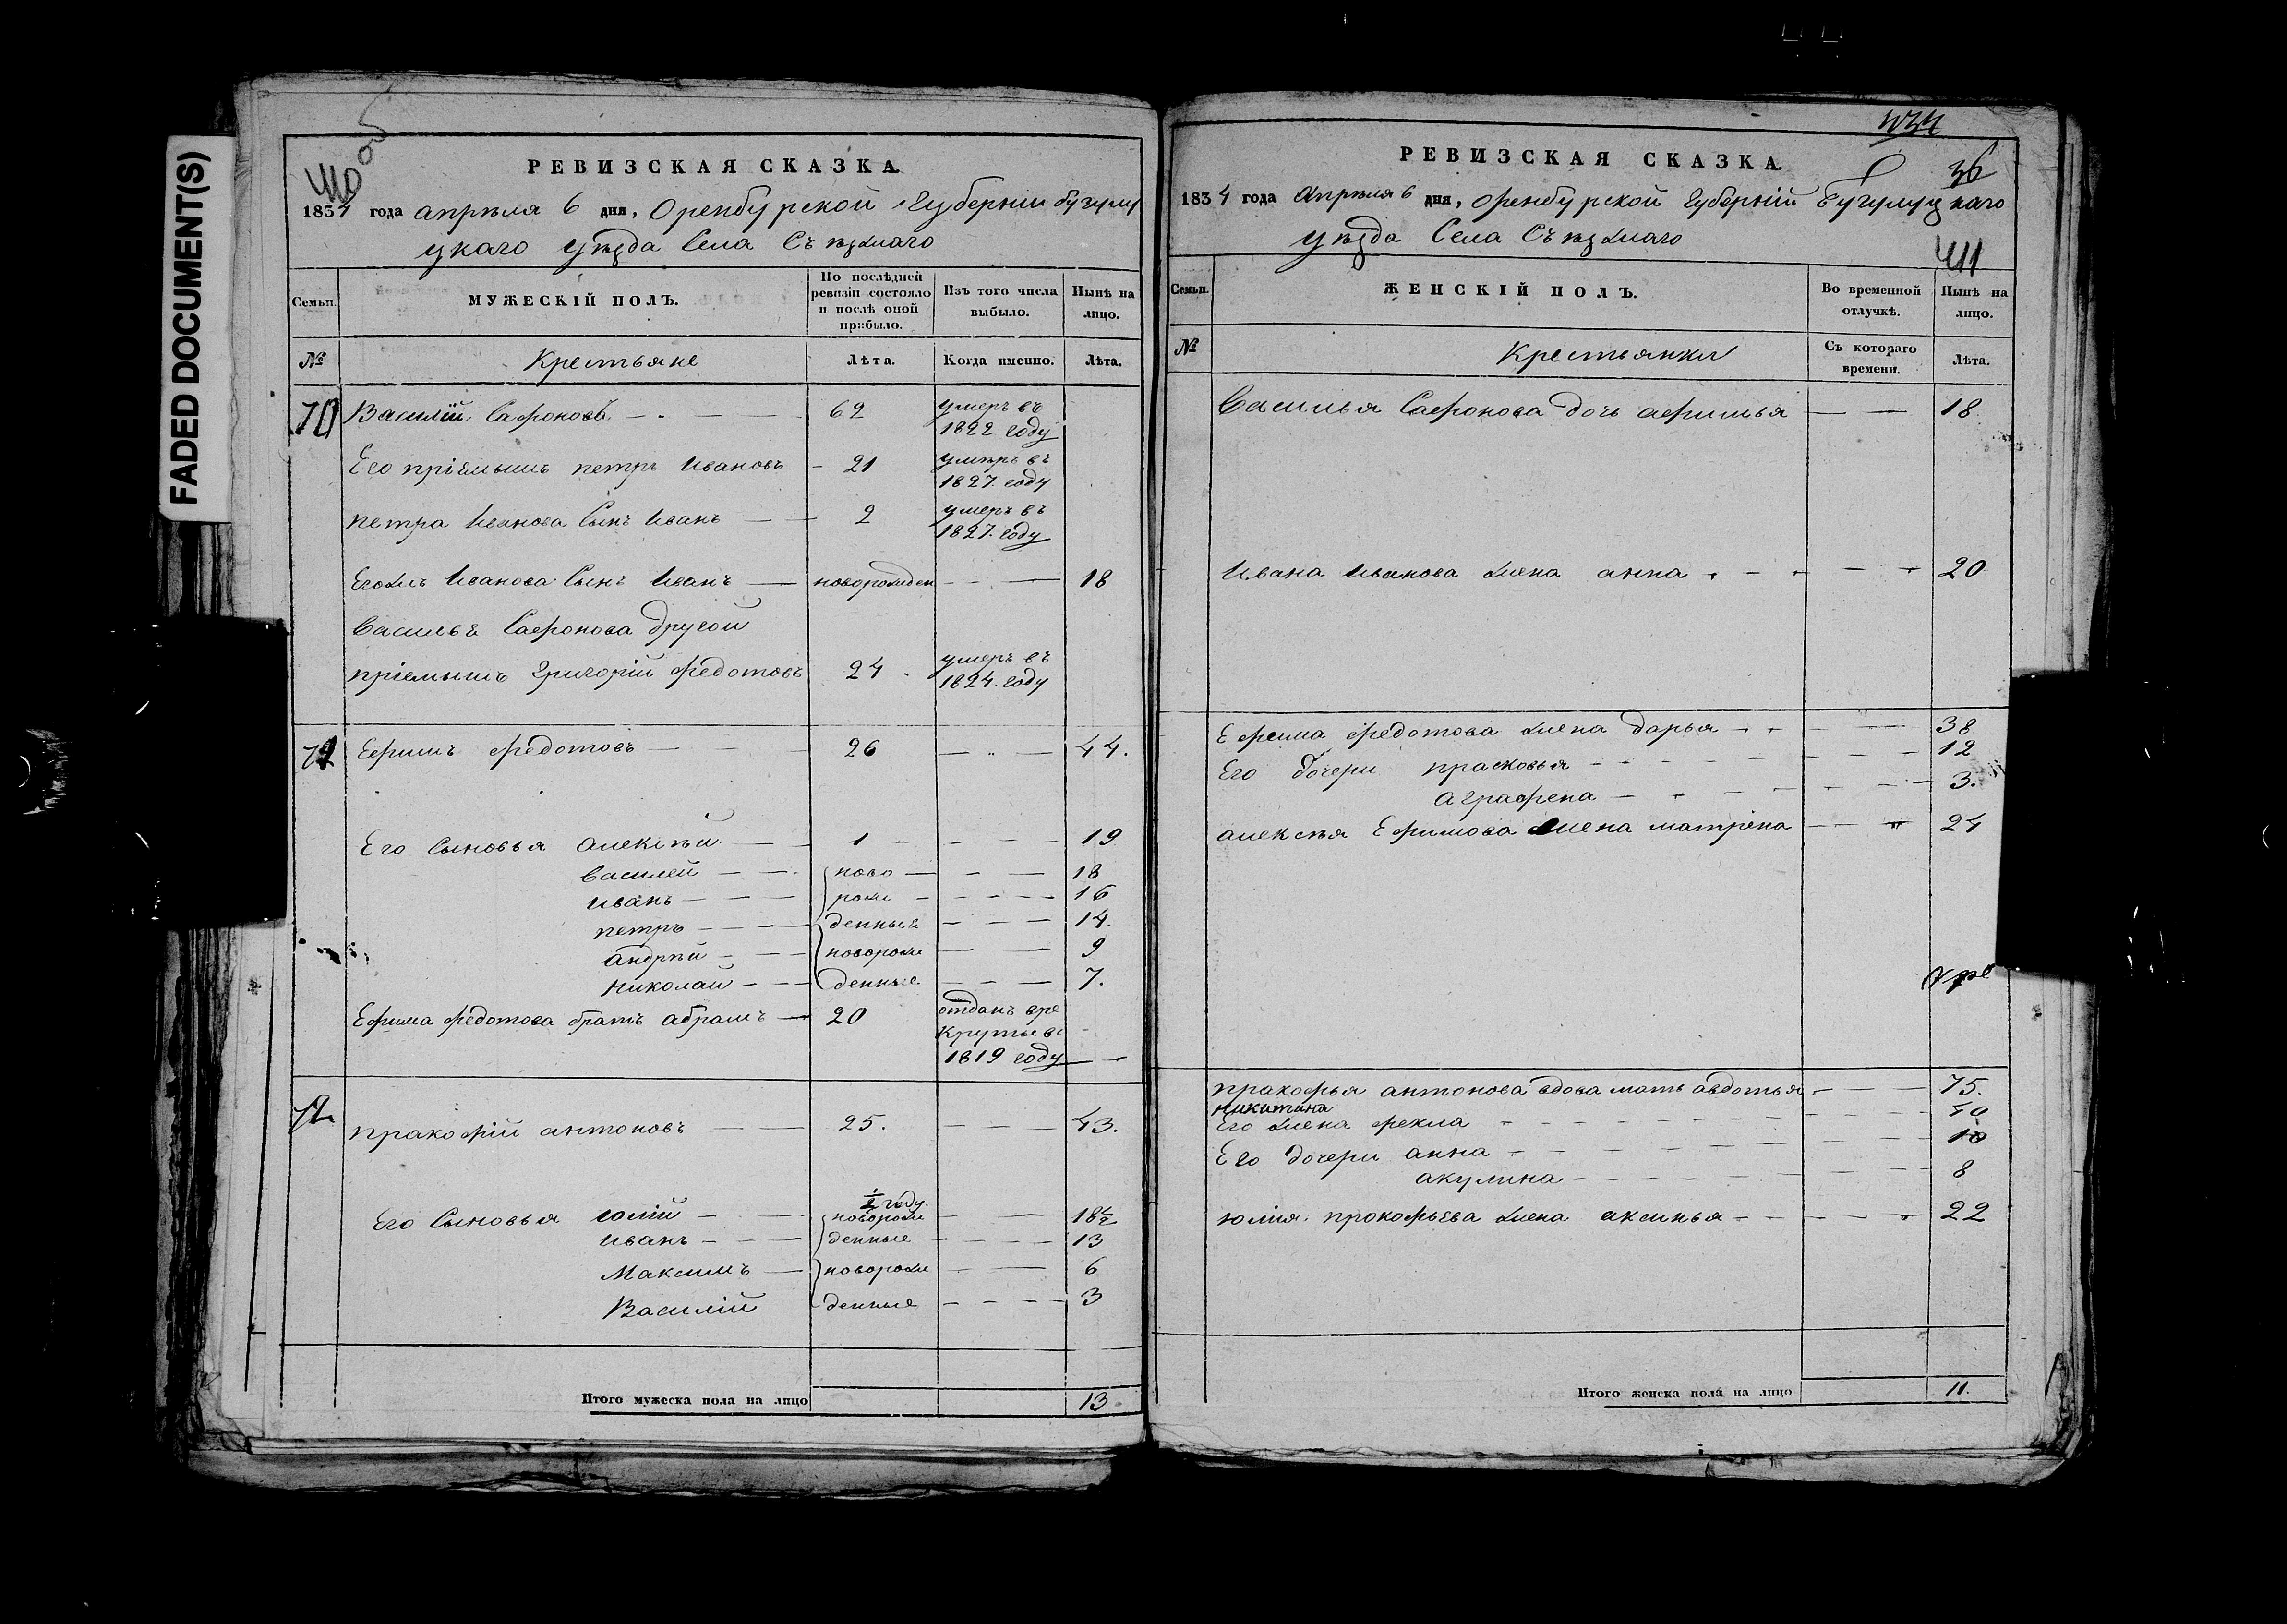 FADED DOCUMENT(S)
410
РЕВИЗСКАЯ СКАЗКА
1834 года апрѣля 6 дня, Оренбурской Губернии бугурус
цкаго уѣзда Села Съѣзжаго
Семьи.
МУЖЕСКІЙ ПОЛЪ.
По послѣдней ревизіи состояло и послѣ оной прибыло.
Изъ того числа выбыло.
Нынѣ на лицо.
№
Крестьяне
Лѣта.
Когда именно.
Лѣта.
70 Василій Сафоновъ 62 умеръ въ 1822 году
Его пріемышъ петръ Ивановъ 21 умеръ въ 1827 году
петра Иванова Сынъ Иванъ 2 умеръ въ 1827 году
Егожъ Иванова Сынъ Иванъ новорожден 18
Василья Сафонова другой
пріемышъ Григорій Федотовъ 24 умеръ въ 1824 году
71 Ефимъ Федотовъ 26 44.
Его Сыновья Алексѣй 1 19
Василей ново 18
Иванъ рож 16
петръ денные 14.
андрѣй новорож 9
николай денные 7.
Ефима Федотова братъ абрамъ 20 отданъ вре
круты въ
1819 году
72 пракофій антоновъ 25. 43.
1/2 году
Его Сыновья юлій новорож 18 1/2
Иванъ денные 13
Максимъ новорож 6
Василій денные 3
Итого мужеска пола на лицо 13
36
РЕВИЗСКАЯ СКАЗКА
1834 года апрѣля 6 дня, Оренбурской Губерній Бугуруцкаго
уѣзда Села Съѣзжаго
411
Семьи.
ЖЕНСКІЙ ПОЛЪ.
Во временной отлучкѣ.
Нынѣ на лицо.
№
Крестьянки
Съ котораго времени.
Лѣта.
Василья Сафонова дочь афимья 18.
Ивана Иванова жена анна 20
Ефима Федотова жена дарья 38
Его дочери прасковья 12
аграфена 3.
алексѣя Ефимова жена матрена 24
пракофья антонова вдова мать авдотья 75.
никитина
Его жена фекла 40
Его дочери анна 10
акулина 8
юлія прокофьева жена аксинья 22
Итого женска пола на лицо 11.